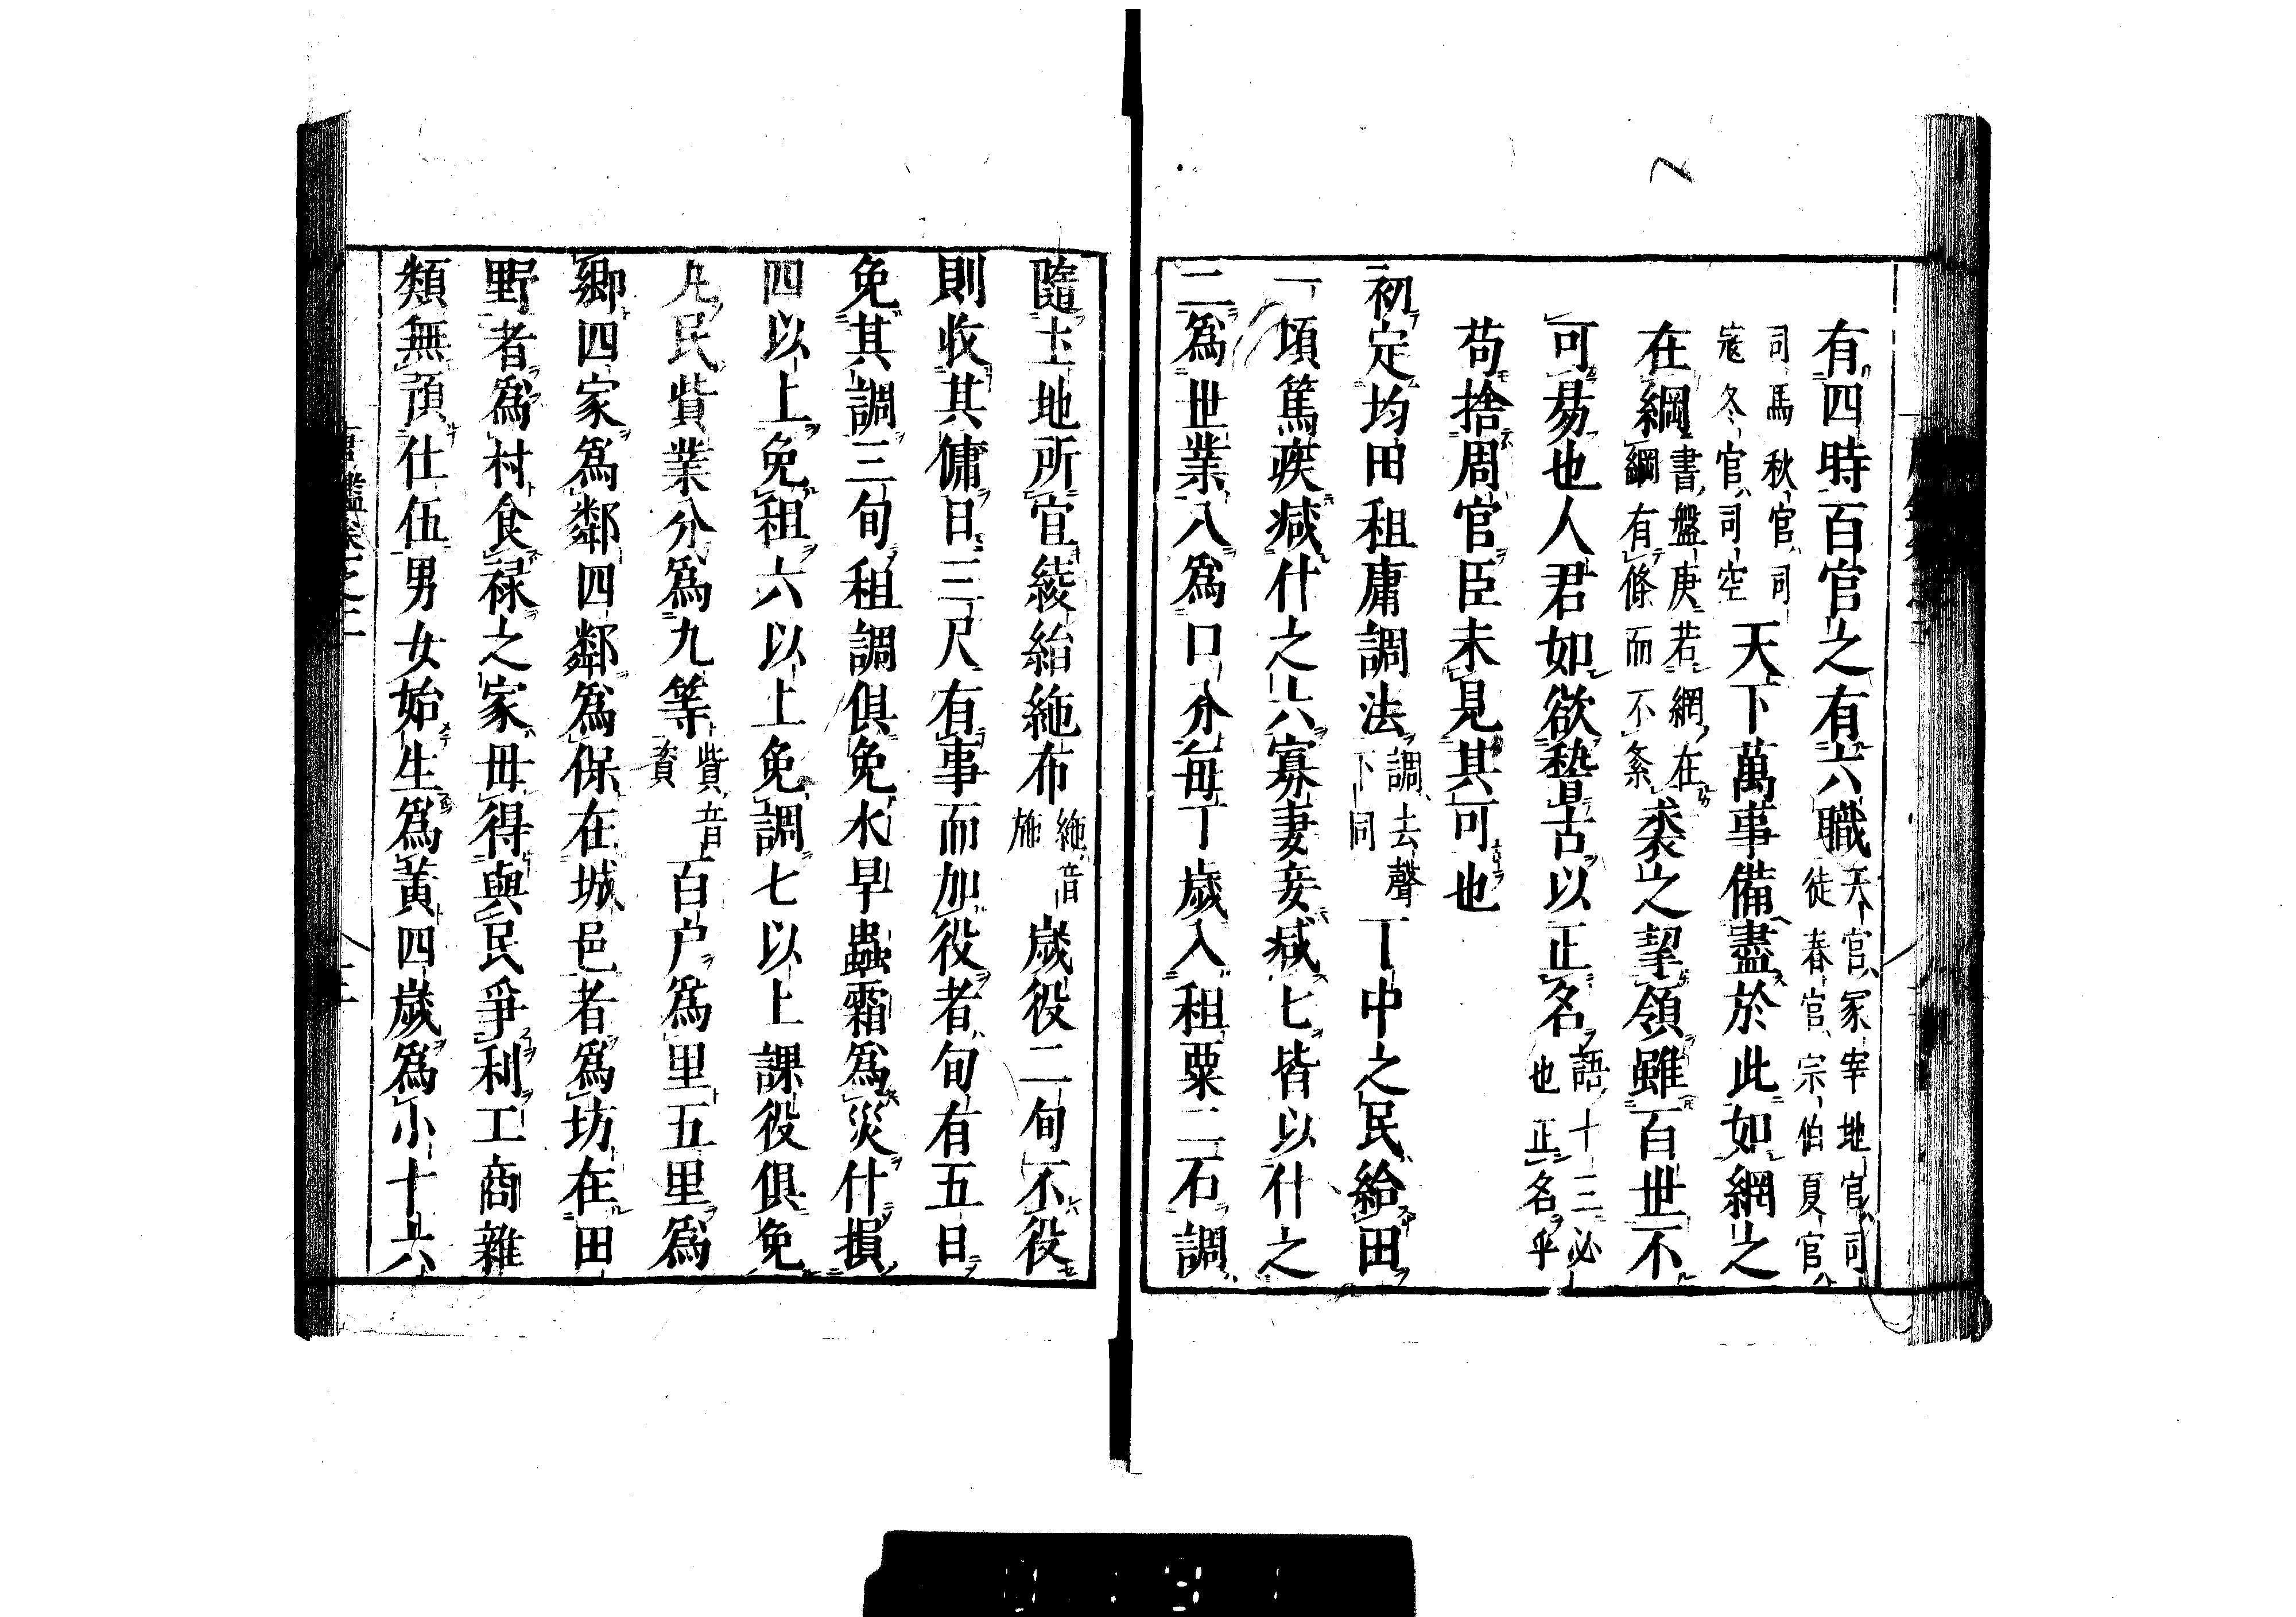 有四時百官之有六職天官冢宰地官司徒春官宗伯夏官
司馬秋官司寇冬官司空天下萬事備盡於此如網之
在綱書盤庚若網在綱有條而不紊裘之挈領雖百世不
可易也人君如欲稽古以正名語十三必也正名乎
苟捨周官臣未見其可也
初定均田租庸調法調去聲下同丁中之民給田
一頃篤疾减什之六寡妻妾减七皆以什之
二爲世業八爲口分每丁歲入租粟二石調
隨土地所宜綾絹絁布絁音施歲役二旬不役
則收其傭日三尺有事而加役者旬有五日
免其調三旬租調俱免水旱蟲霜爲災什損
四以上免租六以上免調七以上課役俱免
凡民貲業分爲九等貲音資百户爲里五里爲
鄉四家爲鄰四鄰爲保在城邑者爲坊在田
野者爲村食禄之家毋得與民爭利工商雜
類無預仕伍男女始生爲黃四歲爲小十六